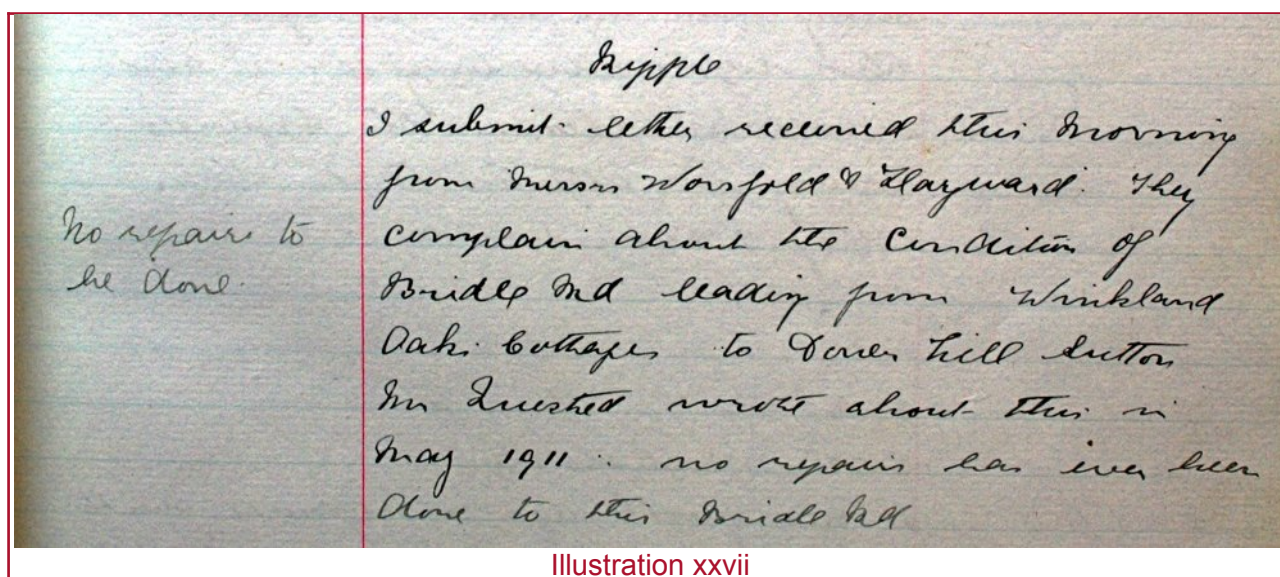 Ripple
I submit letter received this morning
from Messrs Worsfold & Hayward. They
complain about the condition of
Bridle Rd leading from Winkland
Oaks Cottages to Dover Hill Sutton
Mr Quested wrote about this in
May 1911. no repairs has ever been
done to this Bridle Rd
No repairs to
be done.
Illustration xxvii